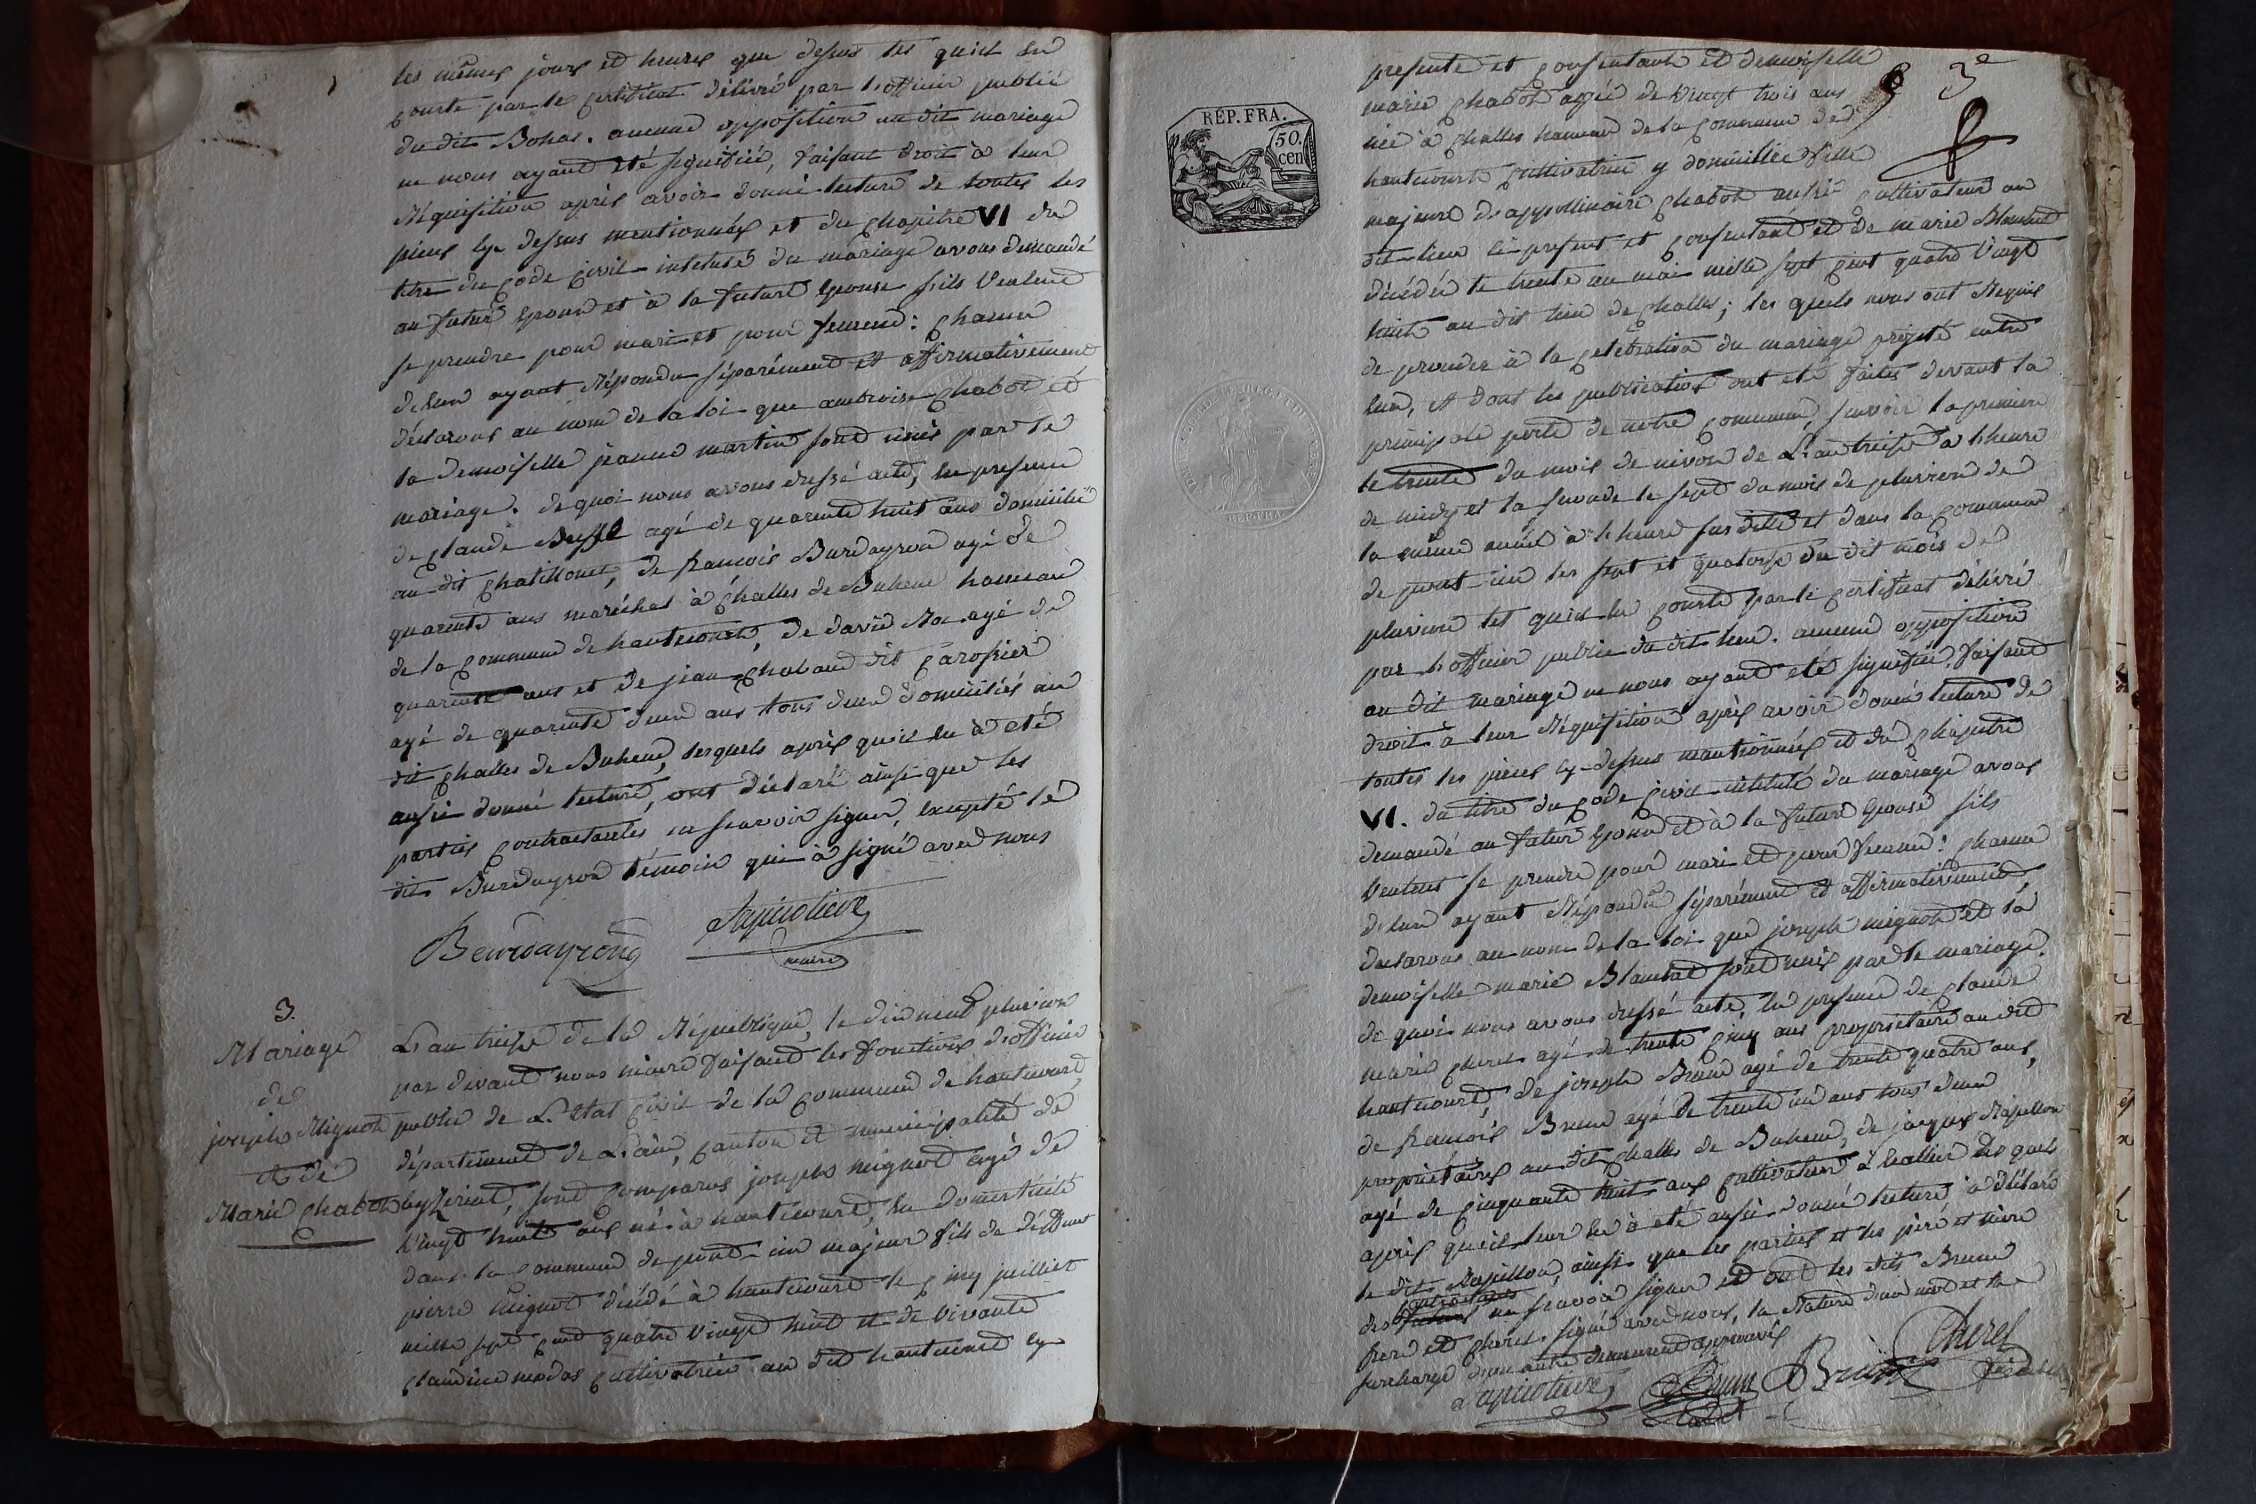 les mêmes jours et heures que dessus tel qu'il en
conste par le certificat délivré par l'officier public
du dit Bohas. aucune opposition au dit mariage
ne nous ayant été signifiée, faisant droit à leur
réquisition après avoir donné lecture de toutes les
pièces cy dessus mentionnées et du chapitre VI du
titre du code civil intitulé du mariage avons demandé
au futur epoux et à la future epouse s'ils veulent
se prendre pour mari et pour femme: chacun
d'eux ayant répondu séparément et affirmativement
déclarons au nom de la loi que ambroise chabod et
la demoiselle jeanne martin sont unis par le
mariage. de quoi nous avons dressé acte, en presence
de claude agé de quarante huit ans domicilié
au dit chatillonet, de francois Burdayron agé de
quarante ans maréchal à challes de Boheme hameau
de la commune de hautecourt, de david agé de
quarante ans et de jean chaland dit carossier
agé de quarante deux ans tous deux domiciliés au
dit challes de Boheme, lesquels après qu'il en à eté
aussi donné lecture, ont déclaré ainsi que les
parties contractantes ne scavoir signer, excepté le
dit Burdayron témoin qui à signé avec nous
Beurdayrond
maire
3.
Mariage
de
joseph Mignot
et de
Marie chabod
L'an treize de la République, le dix neuf pluviose
par devant nous maire faisant les fonctions d'officier
public de L'Etat civil de la commune de hautecourt,
département de L'ain, canton et municipalité de
ceyzeriat, sont comparus joseph mignot agé de
vingt huit ans né à hautecourt, en domesticité
dans la commune de pont-ain majeur fils de déffunt
pierre mignot décédé à hautecourt le cinq juillet
mille sept cent quatre vingt huit et de vivante
claudine cultivatrice au dit hautecourt cy
3e
REP. FRA.
50. cen
presente et consentante et demoiselle
marie chabod agée de vingt trois ans
née à challes hameau de la commune de
hautecourt cultivatrice y domiciliée fille
majeure de appollinaire chabod aussi cultivateur au
dit lieu ci present et consentant et de marie
décédée le trente un mai mille sept cent quatre vingt
huit au dit lieu de challes; les quels nous ont requis
de proceder à la celebration du mariage projeté entre
eux, et dont les publications ont eté faites devant la
principale porte de notre commune, scavoir la premiere
le trente du mois de nivose de L'an treize a l'heure
de midy et la seconde le sept du mois de pluviose de
la même année à l'heure sus ditte et dans la commune
de pont-ain les sept et quatorze du dit mois de
pluviose tel qu'il en conste par le certificat délivré
par l'officier public du dit lieu. aucune opposition
au dit mariage ne nous ayant eté signifiée, faisant
droit à leur réquisition après avoir donné lecture de
toutes les pièces cy-dessus mentionnées et du chapitre
VI. du titre du code civil intitulé du mariage avons
demandé au futur epoux et à la future epouse s'ils
veulent se prendre pour mari et pour femme: chacun
d'eux ayant répondu séparément et affirmativement
declarons au nom de la loi que joseph mignot et la
demoiselle marie sont unis par le mariage.
de quoi nous avons dressé acte, en presence de claude
marie cherel agé de trente cinq ans propriétaire au dit
hautecourt, de joseph Brun agé de trente quatre ans,
de francois Brun agé de trente un ans tous deux
propriétaires au dit challes de Boheme, de jacques
agé de cinquante huit ans cultivateur à les quels
après qu'il leur en à eté aussi donné lecture à déclaré
le dit ainsi que les parties et les père et mère
des contractants ne scavoir signer et ont les dits Brun
frere et cherel signé avec nous, la rature d'un mot et la
surcharge d'un autre demeurent approuvés
Brun Cherel